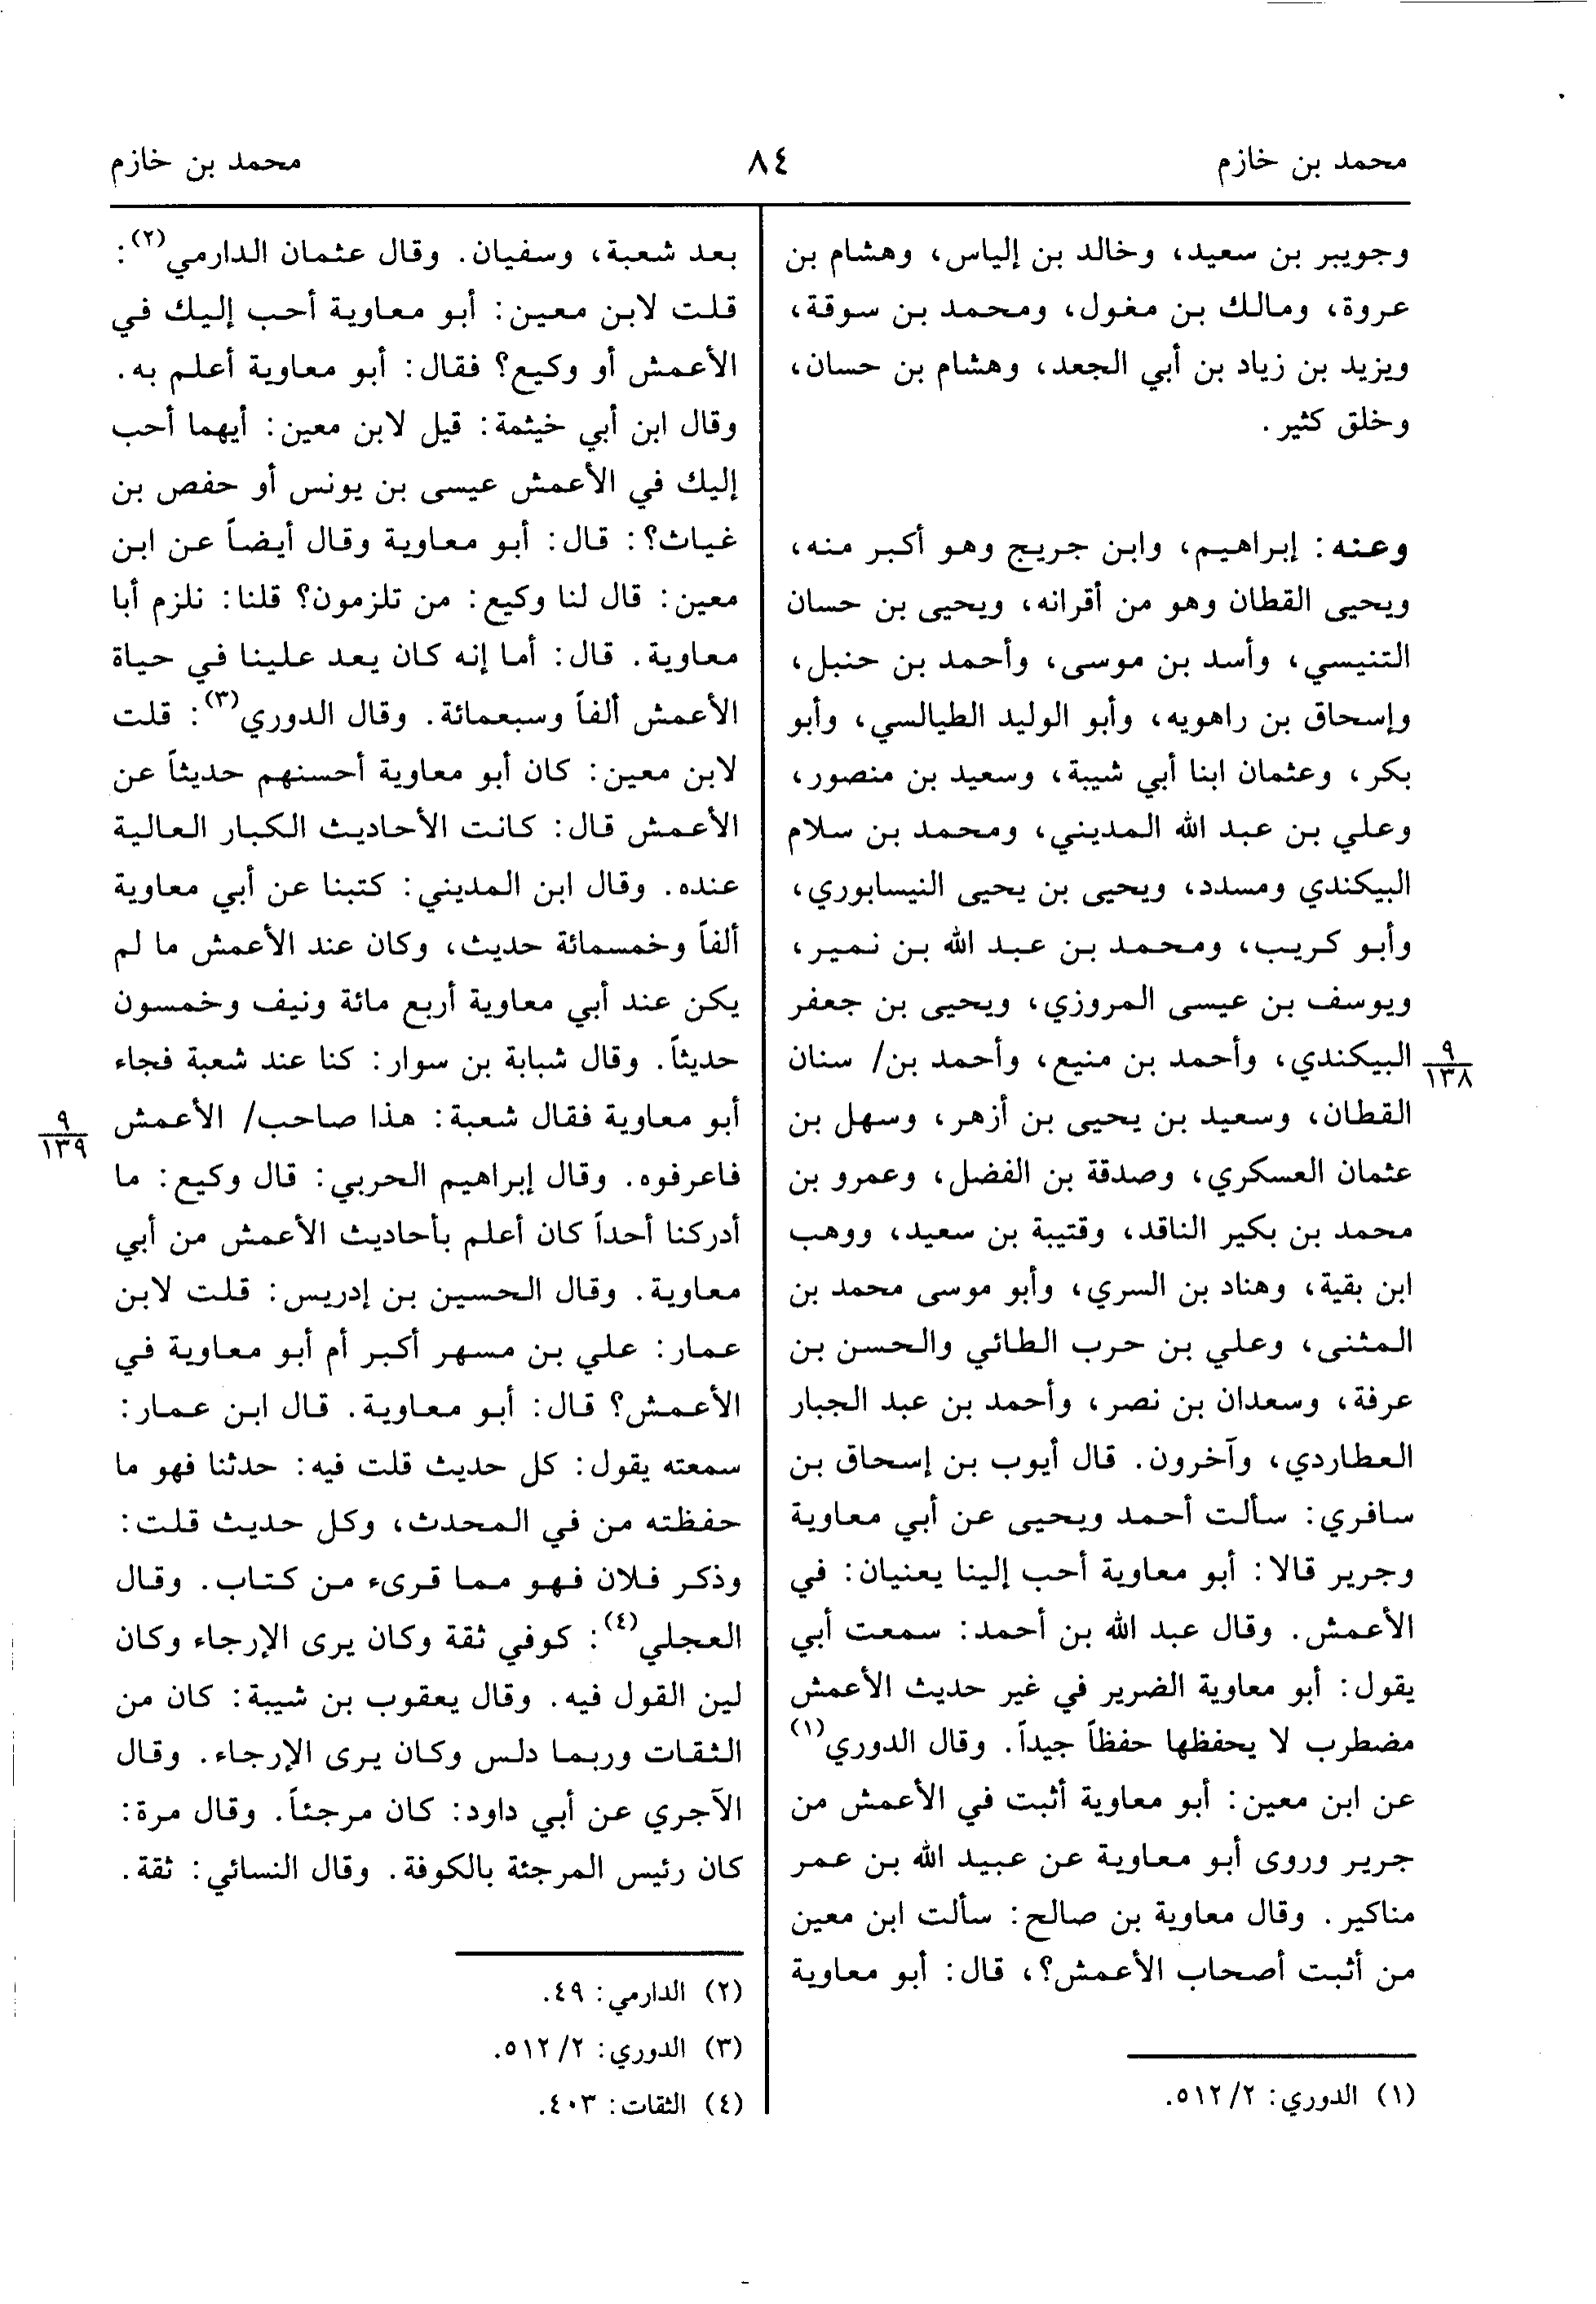 محمد بن خازم
٨٤
محمد بن خازم
وجويبر بن سعيد، وخالد بن إلياس، وهشام بن
عروة، ومالك بن مغول، ومحمد بن سوقة،
ويزيد بن زياد بن أبي الجعد، وهشام بن حسان،
وخلق كثير.
وعنه: إبراهيم، وابن جريج وهو أكبر منه،
ويحيى القطان وهو من أقرانه، ويحيى بن حسان
التنيسي، وأسد بن موسى، وأحمد بن حنبل،
وإسحاق بن راهويه، وأبو الوليد الطيالسي، وأبو
بكر، وعثمان ابنا أبي شيبة، وسعيد بن منصور،
وعلي بن عبد الله المديني، ومحمد بن سلام
البيكندي ومسدد، ويحيى بن يحيى النيسابوري،
وأبو كريب، ومحمد بن عبد الله بن نمير،
ويوسف بن عيسى المروزي، ويحيى بن جعفر
البيكندي، وأحمد بن منيع، وأحمد بن/ سنان
٩
١٣٨
القطان، وسعيد بن يحيى بن أزهر، وسهل بن
عثمان العسكري، وصدقة بن الفضل، وعمرو بن
محمد بن بكير الناقد، وقتيبة بن سعيد، ووهب
ابن بقية، وهناد بن السري، وأبو موسى محمد بن
المثنى، وعلي بن حرب الطائي والحسن بن
عرفة، وسعدان بن نصر، وأحمد بن عبد الجبار
العطاردي، وآخرون. قال أيوب بن إسحاق بن
سافري: سألت أحمد ويحيى عن أبي معاوية
وجرير قالا: أبو معاوية أحب إلينا يعنيان: في
الأعمش. وقال عبد الله بن أحمد: سمعت أبي
يقول: أبو معاوية الضرير في غير حديث الأعمش
مضطرب لا يحفظها حفظاً جيداً. وقال الدوري(١)
عن ابن معين: أبو معاوية أثبت في الأعمش من
جرير وروى أبو معاوية عن عبيد الله بن عمر
مناكير. وقال معاوية بن صالح: سألت ابن معين
من أثبت أصحاب الأعمش؟، قال: أبو معاوية
(١) الدوري: ٢/ ٥١٢.
بعد شعبة، وسفيان. وقال عثمان الدارمي(٢):
قلت لابن معين: أبو معاوية أحب إليك في
الأعمش أو وكيع؟ فقال: أبو معاوية أعلم به.
وقال ابن أبي خيثمة: قيل لابن معين: أيهما أحب
إليك في الأعمش عيسى بن يونس أو حفص بن
غياث؟: قال: أبو معاوية وقال أيضاً عن ابن
معين: قال لنا وكيع: من تلزمون؟ قلنا: نلزم أبا
معاوية. قال: أما إنه كان يعد علينا في حياة
الأعمش ألفاً وسبعمائة. وقال الدوري(٣): قلت
لابن معين: كان أبو معاوية أحسنهم حديثاً عن
الأعمش قال: كانت الأحاديث الكبار العالية
عنده. وقال ابن المديني: كتبنا عن أبي معاوية
ألفاً وخمسمائة حديث، وكان عند الأعمش ما لم
يكن عند أبي معاوية أربع مائة ونيف وخمسون
حديثاً. وقال شبابة بن سوار: كنا عند شعبة فجاء
أبو معاوية فقال شعبة: هذا صاحب/ الأعمش
٩
١٣٩
فاعرفوه. وقال إبراهيم الحربي: قال وكيع: ما
أدركنا أحداً كان أعلم بأحاديث الأعمش من أبي
معاوية. وقال الحسين بن إدريس: قلت لابن
عمار: علي بن مسهر أكبر أم أبو معاوية في
الأعمش؟ قال: أبو معاوية. قال ابن عمار:
سمعته يقول: كل حديث قلت فيه: حدثنا فهو ما
حفظته من في المحدث، وكل حديث قلت:
وذكر فلان فهو مما قرىء من كتاب. وقال
العجلي(٤): كوفي ثقة وكان يرى الإرجاء وكان
لين القول فيه. وقال يعقوب بن شيبة: كان من
الثقات وربما دلس وكان يرى الإرجاء. وقال
الآجري عن أبي داود: كان مرجئاً. وقال مرة:
كان رئيس المرجئة بالكوفة. وقال النسائي: ثقة.
(٢) الدارمي: ٤٩.
(٣) الدوري: ٢/ ٥١٢.
(٤) الثقات: ٤٠٣.